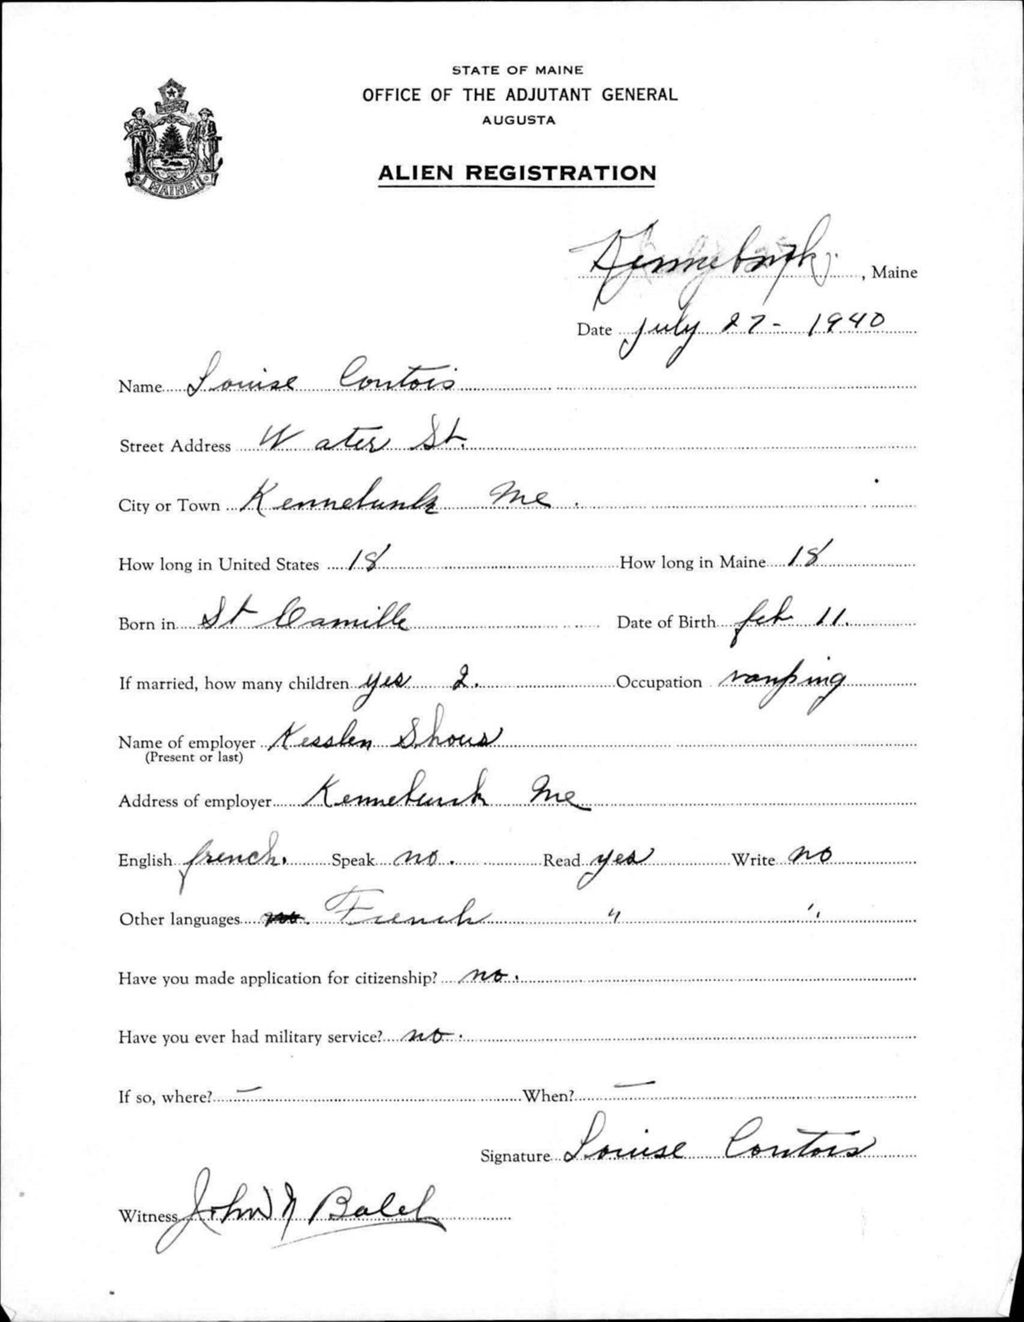 STATE OF MAINE
OFFICE OF THE ADJUTANT GENERAL
AUGUSTA
ALIEN REGISTRATION
MAINE
Kennebunk, Maine
Date July 27 - 1940
Name Louise Contois
Street Address Water St.
City or Town Kennebunk Me.
How long in United States 18 How long in Maine 18
Born in St Camille Date of Birth feb 11.
If married, how many children yes 2. Occupation vamping
Name of employer Kesslen Shous
(Present or last)
Address of employer Kennebunk Me
English french. Speak no. Read yes Write no
Other languages French " "
Have you made application for citizenship? no.
Have you ever had military service? no.
If so, where? — When? —
Signature Louise Contois
Witness John N Balch